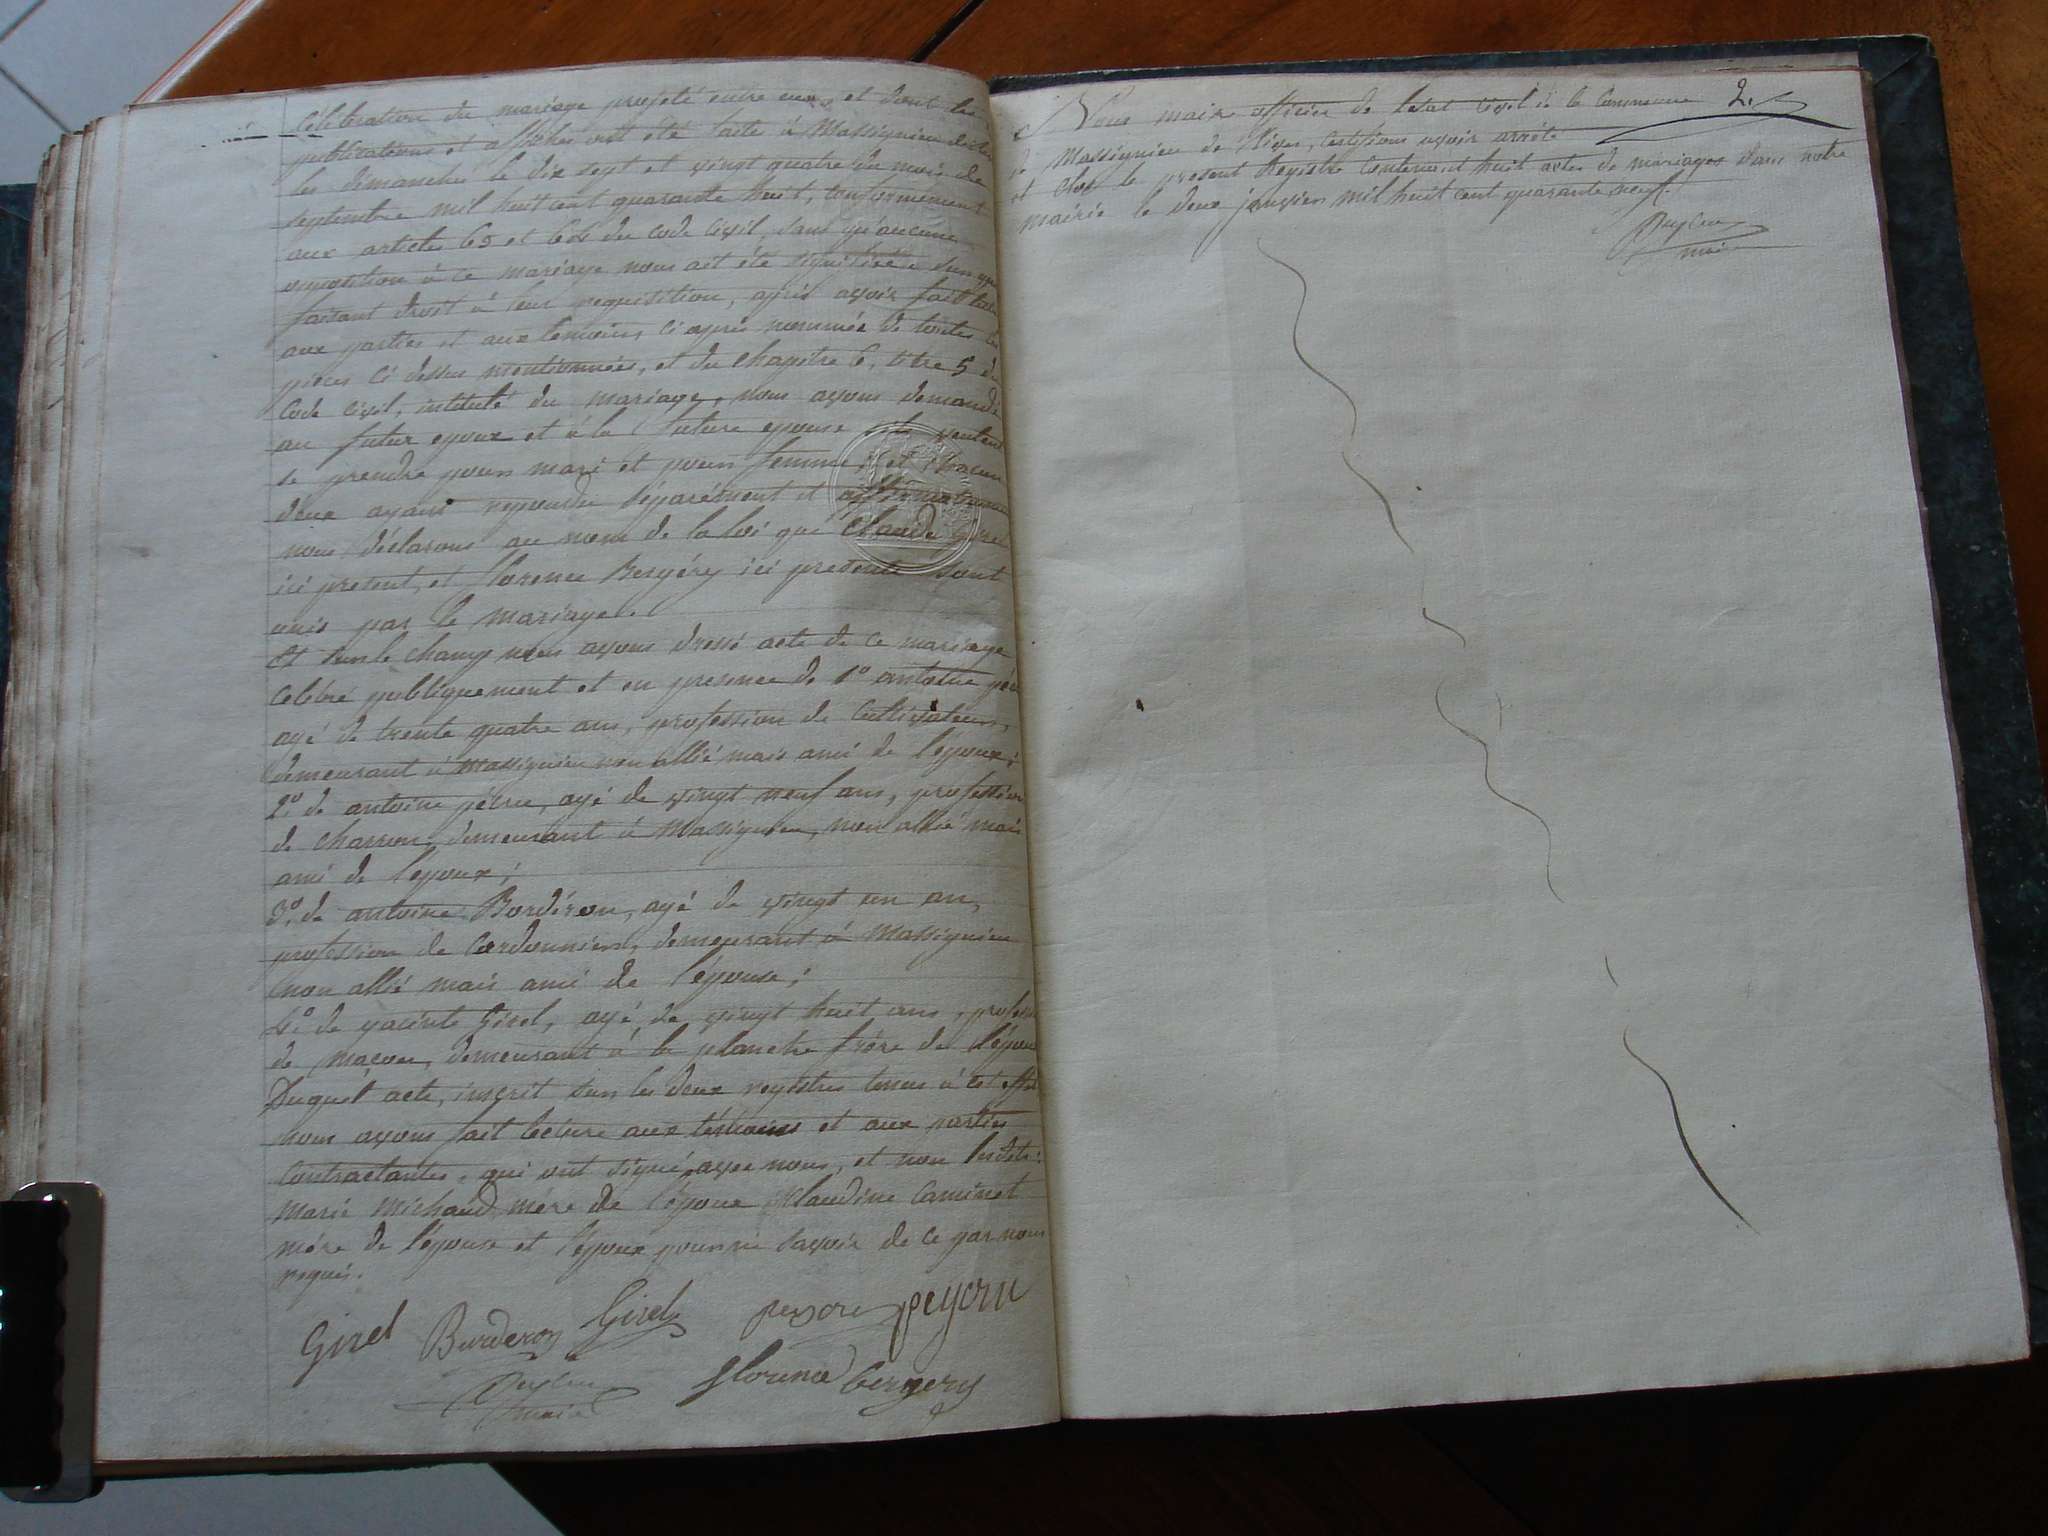 célébration du mariage projeté entre eux, et dont les
publications et affiches ont été faite à Massignieu
les dimanche le dix sept et vingt quatre du mois de
septembre mil huit cent quarante huit, conformement
aux articles 63 et 64 du code civil, sans qu'aucune
opposition à ce mariage nous ait été signifiée
faisant droit à leur requisition, après avoir fait
aux parties et aux temoins ci après nommés de toutes les
pieces ci dessus mentionnées, et du chapitre 6, titre 5 du
Code civil, intitulé du mariage, nous avons demandé
au futur epoux et à la future epouse s'ils veulent
se prendre pour mari et pour femme, et chacun
deux ayant repondu séparément et affirmativement
nous déclarons au nom de la loi que Claude Girel
ici present, et florence Bergéry ici presente sont
unis par le mariage.
Et sur le champ nous avons dressé acte de ce mariage
celébré publiquement et en presence de 1° antoine
agé de trente quatre ans, profession de Cultivateur,
demeurant à Massignieu non allié mais ami de l'epoux;
2° de antoine agé de vingt neuf ans, profession
de charron, demeurant à Massignieu, non allié mais
ami de l'epoux;
3° de antoine Bordéron, agé de vingt un an,
profession de Cordonnier, demeurant à Massignieu
non allié mais ami de l'épouse;
4° de yacinte Girel, agé de vingt huit ans,
de maçon, demeurant à la planche frère de l'époux
Duquel acte, inscrit sur les deux registres tenus à cet effet
nous avons fait lecture aux témoins et aux parties
Contractantes, qui ont signé avec nous, et non
Marie Michaud mère de l'époux Claudine Caminet
mère de l'épouse et l'époux pour ne savoir de ce par nous
requis.
Girel Burderon Girel peycru
florence bergery
maire
Nous maire officier de letat civil de la Commune 2.
de Massignieu de Rives, certifions avoir arrêté
et clos le present Registre Contenant huit actes de mariages dans notre
mairie le deux janvier mil huit cent quarante neuf.
maire